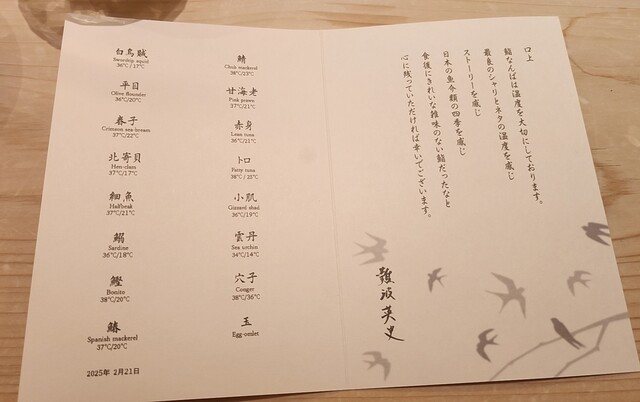 白烏賊
Swordtip squid
36℃/17℃
平目
Olive flounder
36℃/20℃
春子
Crimson sea-bream
37℃/22℃
北寄貝
Hen-clam
37℃/17℃
細魚
Halfbeak
37℃/21℃
鰯
Sardine
36℃/18℃
鰹
Bonito
38℃/20℃
鰆
Spanish mackerel
37℃/20℃
2025年 2月21日
鯖
Chub mackerel
38℃/23℃
甘海老
Pink prawn
37℃/21℃
赤身
Lean tuna
36℃/21℃
トロ
Fatty tuna
38℃/25℃
小肌
Gizzard shad
36℃/19℃
雲丹
Sea urchin
34℃/14℃
穴子
Conger
38℃/36℃
玉
Egg-omlet
口上
鮨なんばは温度を大切にしております。
最良のシャリとネタの温度を感じ
ストーリーを感じ
日本の魚介類の四季を感じ
食後にきれいな雑味のない鮨だったなと
心に残っていただければ幸いでございます。
難波英史